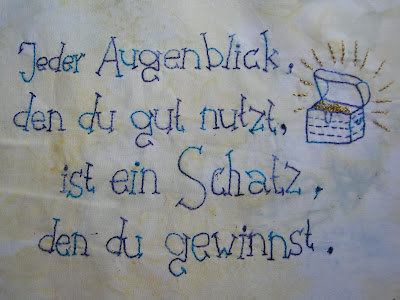 Jeder Augenblick,
den du gut nutzt,
ist ein Schatz,
den du gewinnst.